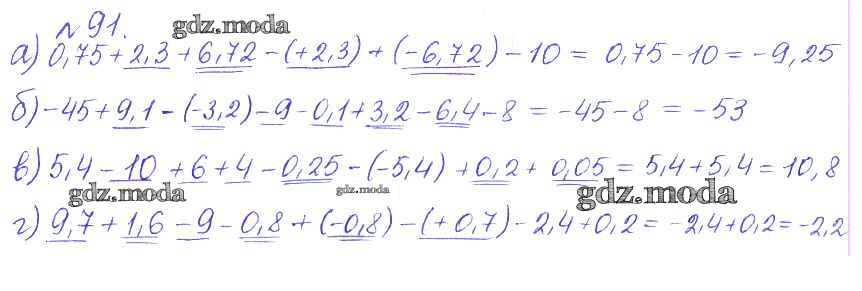 № 91. gdz.moda
а) 0,75 + 2,3 + 6,72 - (+2,3) + (-6,72) - 10 = 0,75 - 10 = -9,25
б) -45 + 9,1 - (-3,2) - 9 - 0,1 + 3,2 - 6,4 - 8 = -45 - 8 = -53
в) 5,4 - 10 + 6 + 4 - 0,25 - (-5,4) + 0,2 + 0,05 = 5,4 + 5,4 = 10,8
gdz.moda gdz.moda gdz.moda
г) 9,7 + 1,6 - 9 - 0,8 + (-0,8) - (+0,7) - 2,4 + 0,2 = -2,4 + 0,2 = -2,2